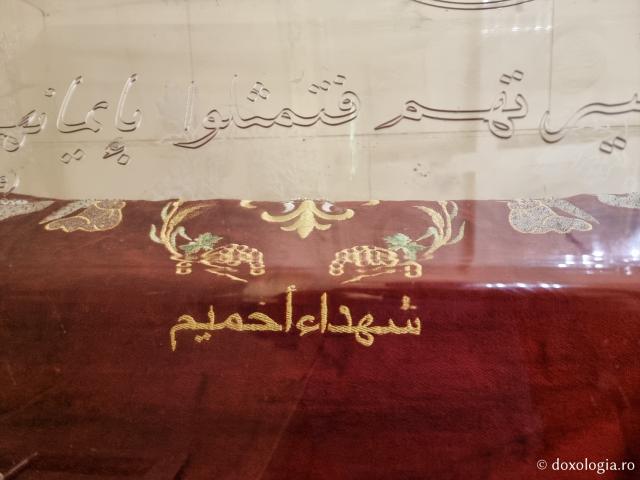 سيرتهم فتمثلوا بإيمانهم
شهداء أخميم
© doxologia.ro